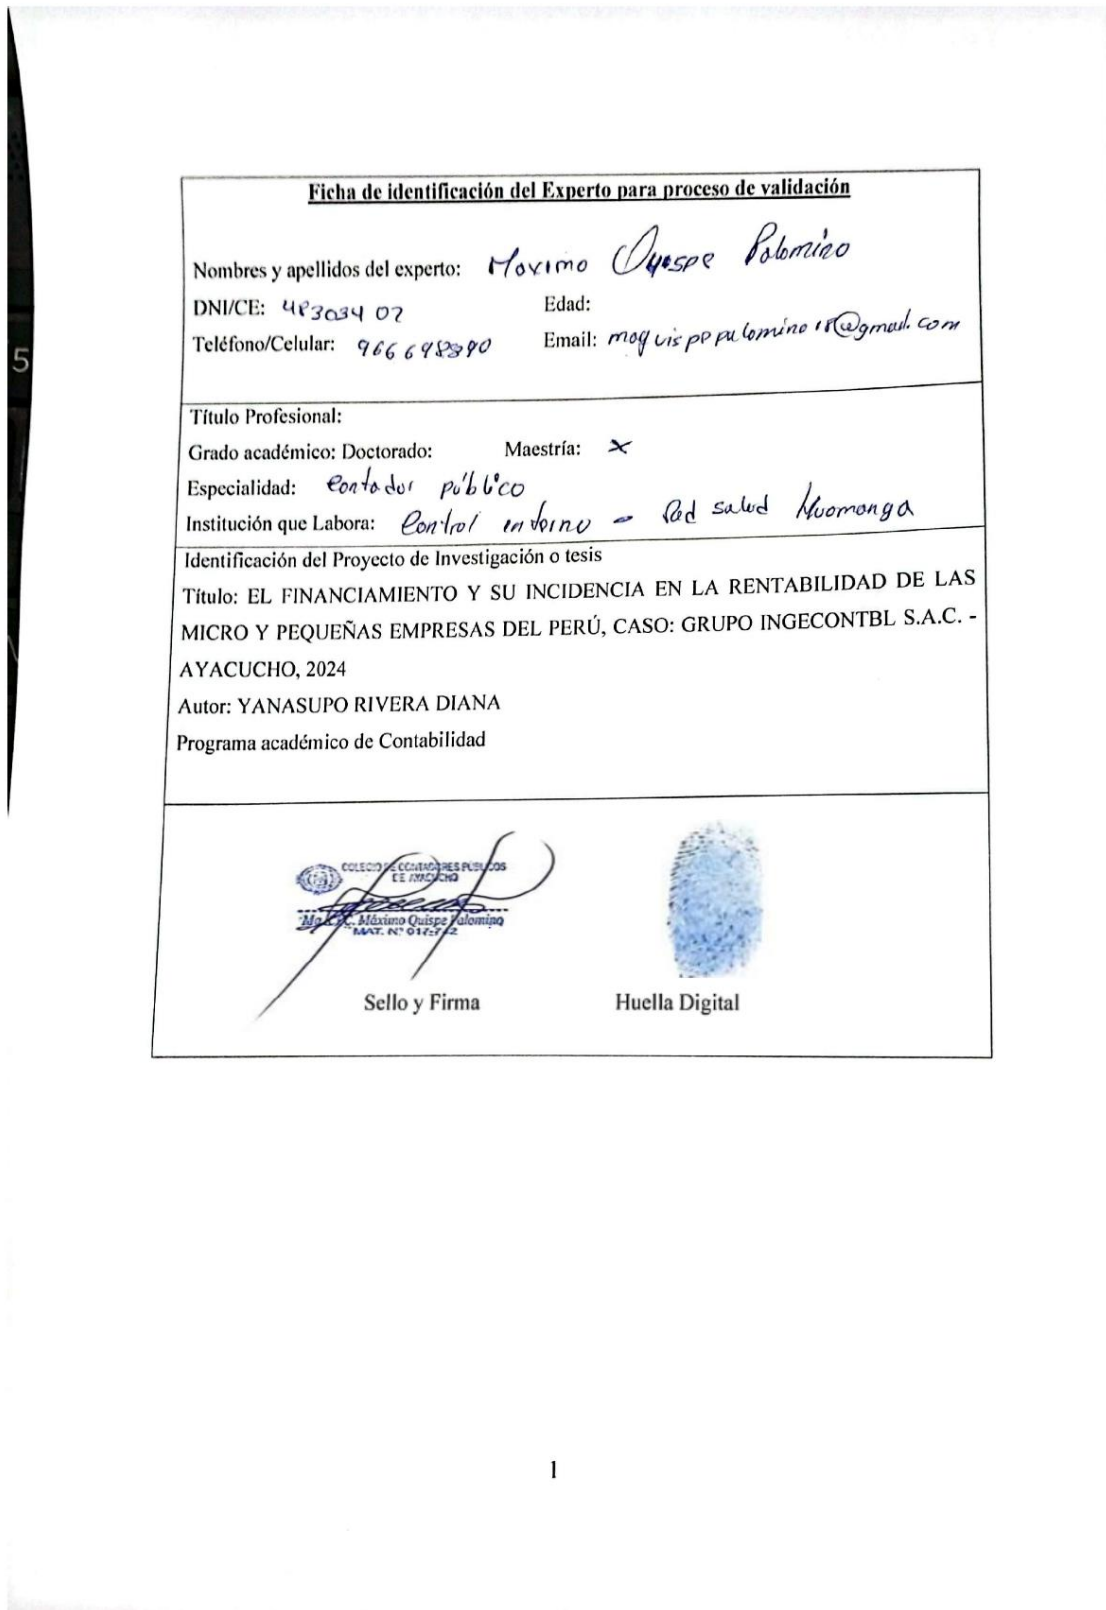 5
Ficha de identificación del Experto para proceso de validación
Nombres y apellidos del experto: Maximo Quispe Palomino
DNI/CE: 48303402 Edad:
Teléfono/Celular: Email: @gmail.com
Título Profesional:
Grado académico: Doctorado: Maestría: X
Especialidad: Contador público
Institución que Labora: Control interno - Red salud Huamanga
Identificación del Proyecto de Investigación o tesis
Título: EL FINANCIAMIENTO Y SU INCIDENCIA EN LA RENTABILIDAD DE LAS
MICRO Y PEQUEÑAS EMPRESAS DEL PERÚ, CASO: GRUPO INGECONTBL S.A.C. -
AYACUCHO, 2024
Autor: YANASUPO RIVERA DIANA
Programa académico de Contabilidad
COLEGIO DE CONTADORES PÚBLICOS
DE AYACUCHO
Máximo Quispe Palomino
MAT. N°
Sello y Firma Huella Digital
1